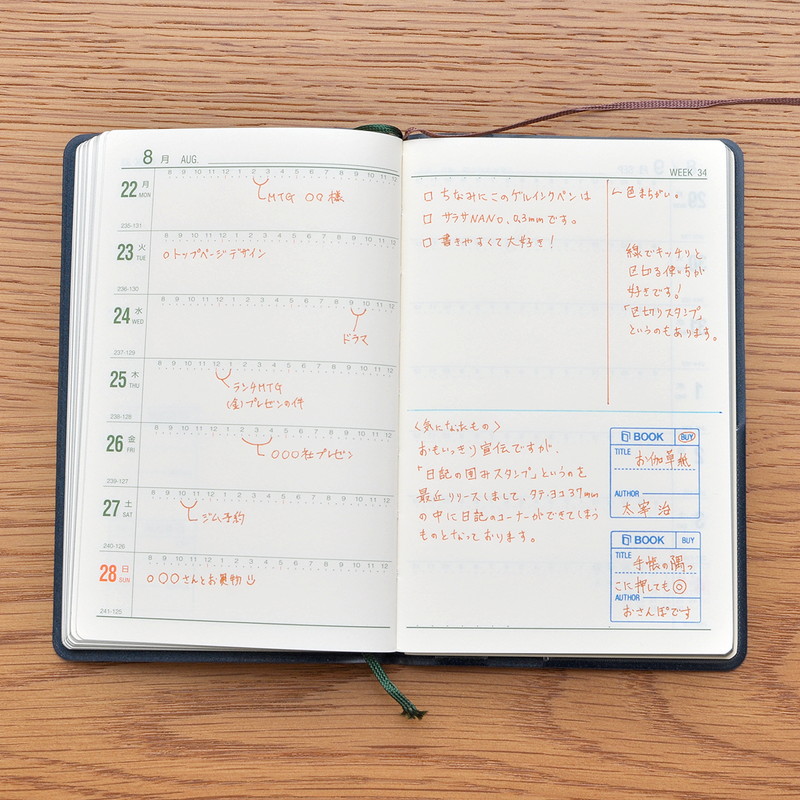 8 月 AUG.
22 月 MON
8 9 10 11 12 1 2 3 4 5 6 7 8 9 10 11 12
MTG ○○様
235-131
23 火 TUE
8 9 10 11 12 1 2 3 4 5 6 7 8 9 10 11 12
○トップページデザイン
236-130
24 水 WED
8 9 10 11 12 1 2 3 4 5 6 7 8 9 10 11 12
ドラマ
237-129
25 木 THU
8 9 10 11 12 1 2 3 4 5 6 7 8 9 10 11 12
ランチMTG
(金)プレゼンの件
238-128
26 金 FRI
8 9 10 11 12 1 2 3 4 5 6 7 8 9 10 11 12
○○○社プレゼン
239-127
27 土 SAT
8 9 10 11 12 1 2 3 4 5 6 7 8 9 10 11 12
ジム予約
240-126
28 日 SUN
8 9 10 11 12 1 2 3 4 5 6 7 8 9 10 11 12
○○○さんとお買物
241-125
WEEK 34
□ ちなみにこのゲルインクペンは
□ サラサNANO、0.3mmです。
□ 書きやすくて大好き!
←色まちがい。
線でキッチリと
区切る使い方が
好きです!
「区切りスタンプ」
というのもあります。
〈気になれもの〉
おもいっきり宣伝ですが、
「日記の囲みスタンプ」というのを
最近リリースしまして、タテ・ヨコ37mm
の中に日記のコーナーができてしまう
ものとなっております。
BOOK BUY
TITLE お伽草紙
AUTHOR
太宰治
BOOK BUY
TITLE 手帳の隅っ
こに押しても◎
AUTHOR
おさんぽです